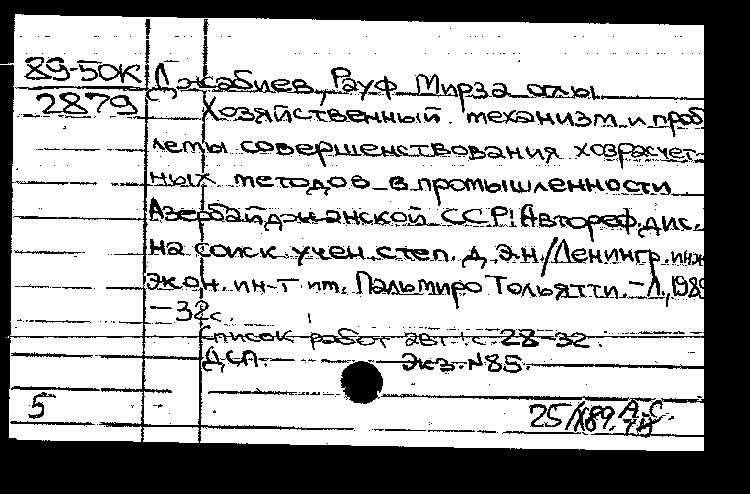 89-50К
2879
Джабиев, Рауф Мирза оглы
Хозяйственный механизм и проб
лемы совершенствования хозрасчет-
ных методов в промышленности
Азербайджанской ССР: Автореф. дис.
на соиск. учен. степ. д.э.н./Ленингр. инж
экон. ин-т им. Пальмиро Тольятти. - Л., 1989
- 32с.
Список работ авт.: с. 28-32.
ДСП. Экз. №85.
5
25/X89.